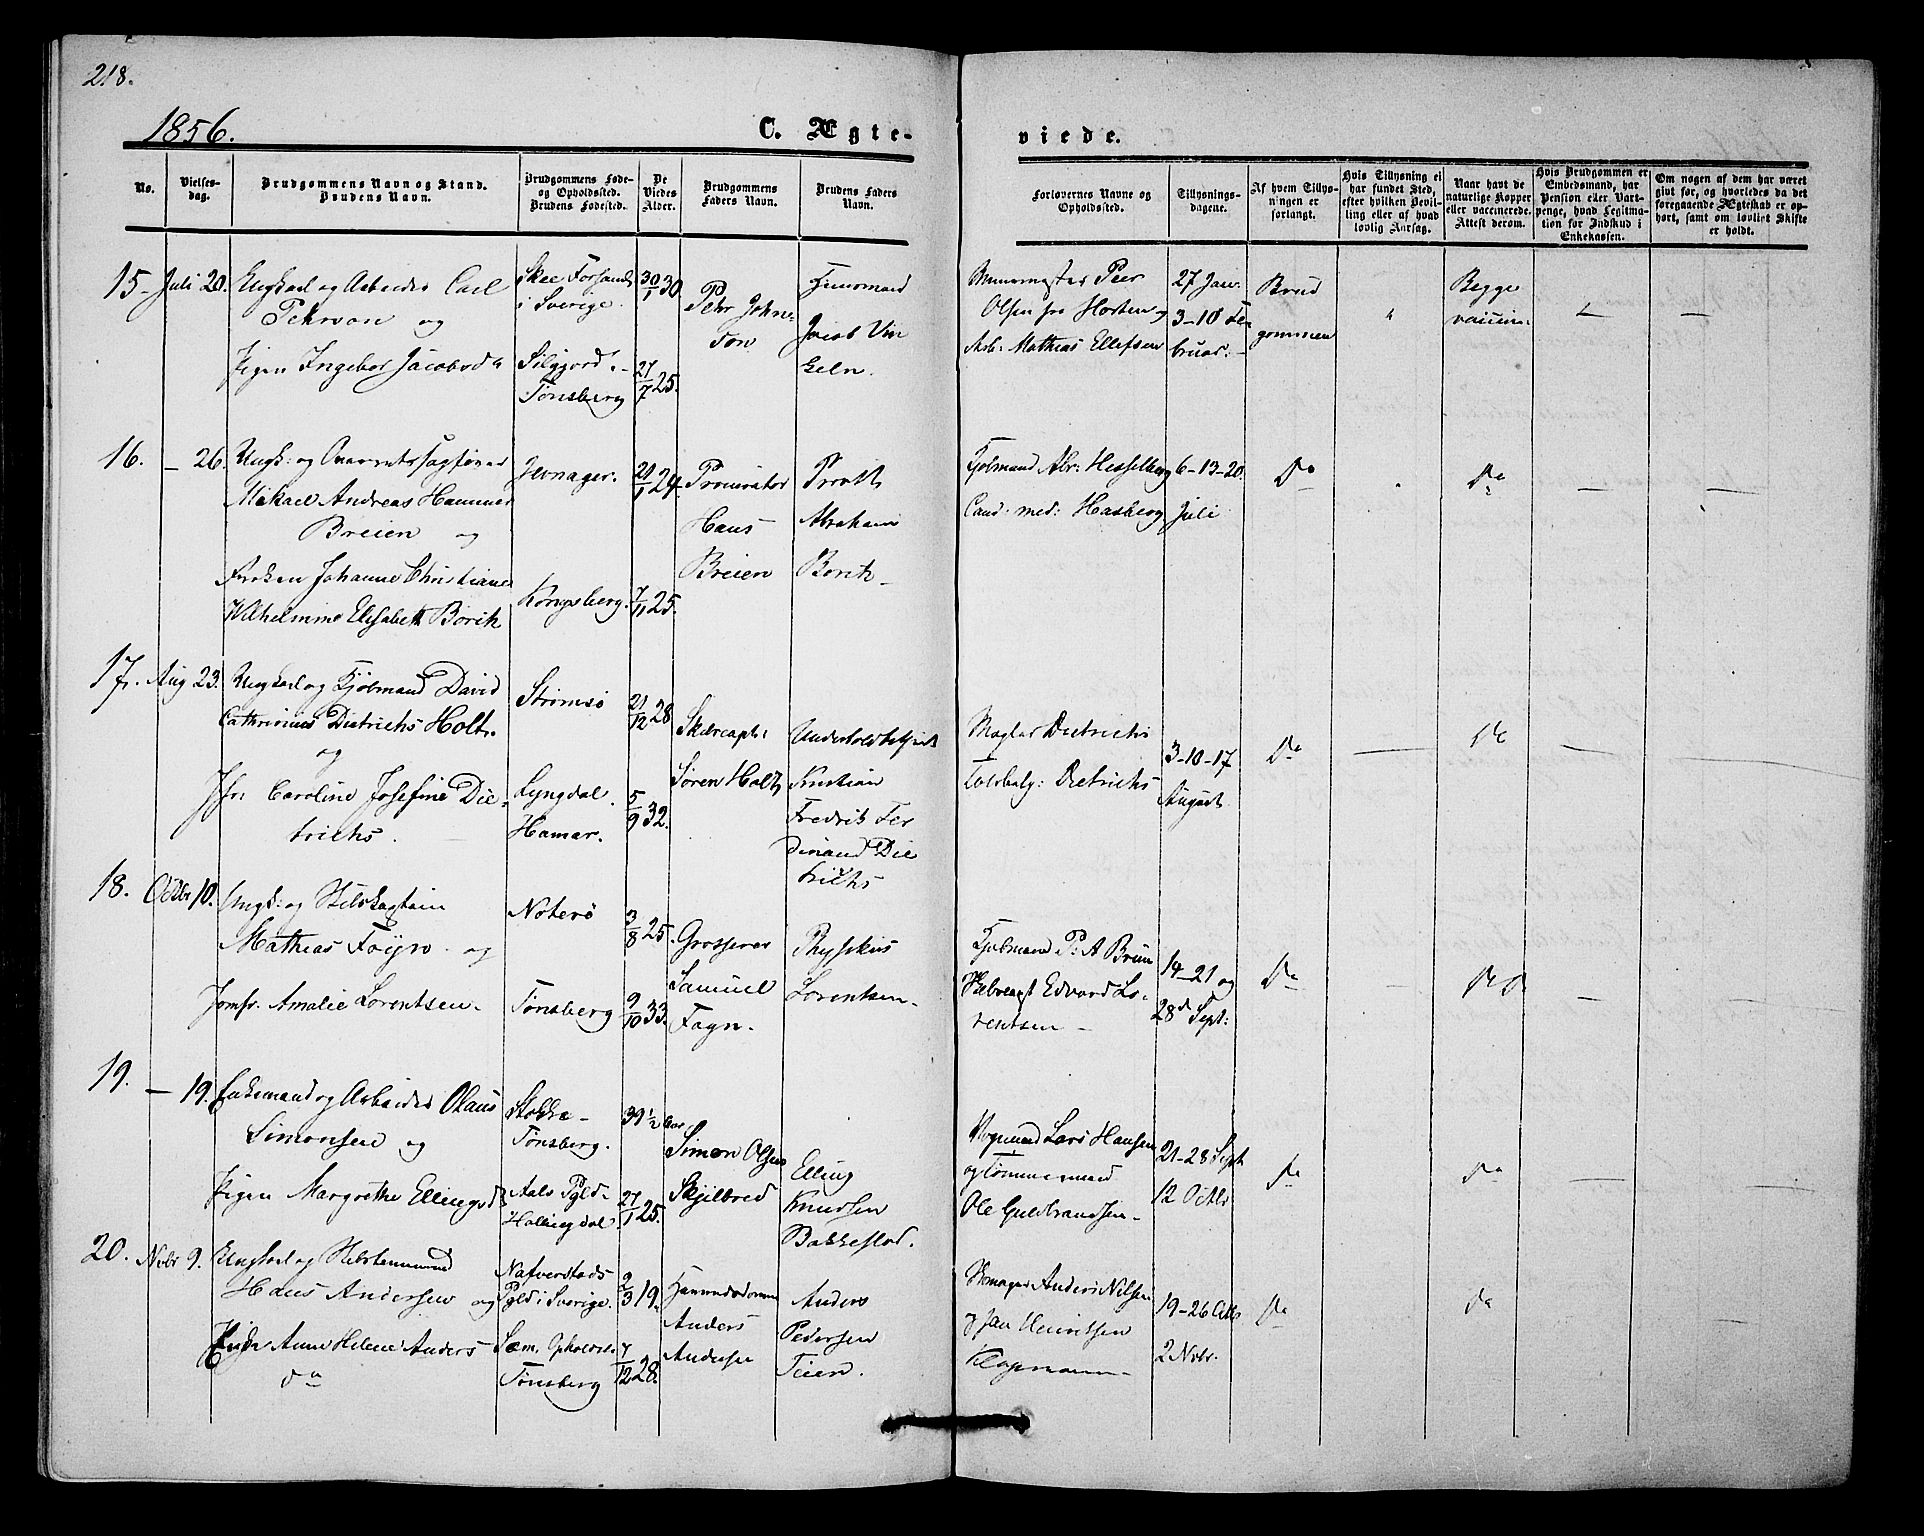 218.
1856.
C. Ægte-
viede.
No.
Vielses-
dag.
Brudgommens Navn og Stand.
Brudens Navn.
Brudgommens Føde-
og Opholdssted.
Brudens Fødested.
De
Viedes
Alder.
Brudgommens
Faders Navn.
Brudens Faders
Navn.
Forlovernes Navne og
Opholdssted.
Tillysnings-
dagene.
Af hvem Tillys-
ningen er
forlangt.
Hvis Tillysning ei
har fundet Sted,
efter hvilken Bevil-
ling eller af hvad
lovlig Aarsag.
Naar havt de
naturlige Kopper
eller vaccinerede.
Attest derom.
Hvis Brudgommen er
Embedsmand, har
Pension eller Vart-
penge, hvad Legitima-
tion for Indskud i
Enkekassen.
Om nogen af dem har været
givt før, og hvorledes da det
foregaaende Ægteskab er op-
hørt, samt om lovligt Skifte
er holdt.
15 Juli 20.
Ungkarl og Arbeider Carl
Pehrson og
Pigen Ingebor Jacobsd
Skee Forsaml
i Sverige.
Siljord
Tønsberg
30/1 30
27/7 25.
Pehr John-
son
Huusmand
Jacob Vin
Olsen fra Horten og
Arb: Mathias Ellefsen
27 Jan.
3-10 Fe
bruar.
Brud
gommen
Begge
vaccin.
16. — 26.
Ungk: og Overretssagfører
Mikael Andreas Hammer
Breien og
Frøken Johanne Christiane
Wilhelmine Elisabeth Borch
Jevnager.
Kongsberg.
29.
7/11 25.
Procurator
Hans
Breien
Provst
Abraham
Borch
Kjøbmand Abr: Hesselberg
Cand. med: Hasberg
6-13-20
Juli
Do
Do
17. Aug 23.
Ungkarl og Kjøbmand David
Cathrinius Dietrichs Holt.
og
Jfr. Caroline Josefine Die-
trichs.
Strømsø
Lyngdal
Hamar.
21/12 28
5/9 32.
Skibscapt:
Søren Holt
Kristian
Fredrik Fer
dinand Die
trichs
Mægler Dietrichs
Toldbetj: Dietrichs
3-10-17
August
Do
Do
18. Octbr 10.
Ungk: og Skibskaptain
Mathias Føyn og
Jomfr. Amalie Lorentsen.
Nøterø
Tønsberg
3/8 25.
9/10 33.
Grosserer
Samuel
Føyn.
Physikus
Lorentsen.
Kjøbmand P: A Bruun
Edvard Lo-
rentsen
14-21 og
28d Sept:
Do
Do
19. — 19.
Enkemand og Arbeider Olaus
Simonsen og
Pigen Margrethe Ellingsd
Stokke
Tønsberg.
Aals Pgld
Hallingdal.
39 ½ Aar
27/1 25.
Simon Olsen
Skjelbred
Elling
Knudsen
Bakkestad.
Vognmand Lars Hansen
og Tømmermand
Ole Guldbrandsen
21-28 Sept
12 Octbr
Do
Do
20. Novbr 9.
Hans Andersen og
Pigen Anne Helene Anders
da
Nafverstads
Pgld i Sverige.
Sem. Opholdst.
Tønsberg
2/3 19.
7/12 28.
Anders
Andersen
Anders
Pedersen
Teien.
Skomager Anders Nilsen
og Jan Henriksen
Klopmann
19-26 Octbr
2 Novbr.
Do
Do